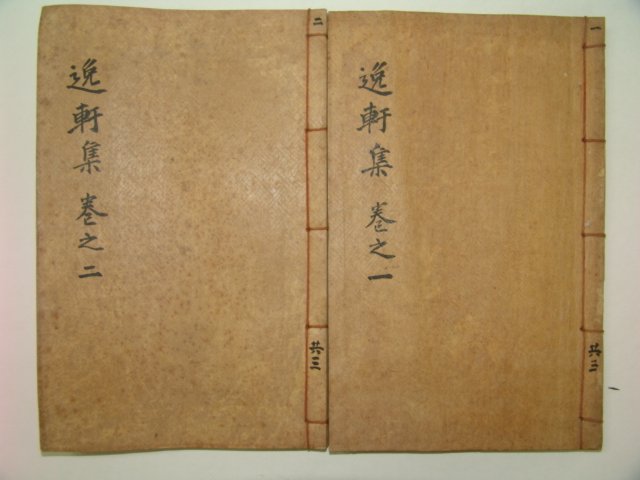 一
逸軒集 卷之一
共
二
逸軒集 卷之二
共三